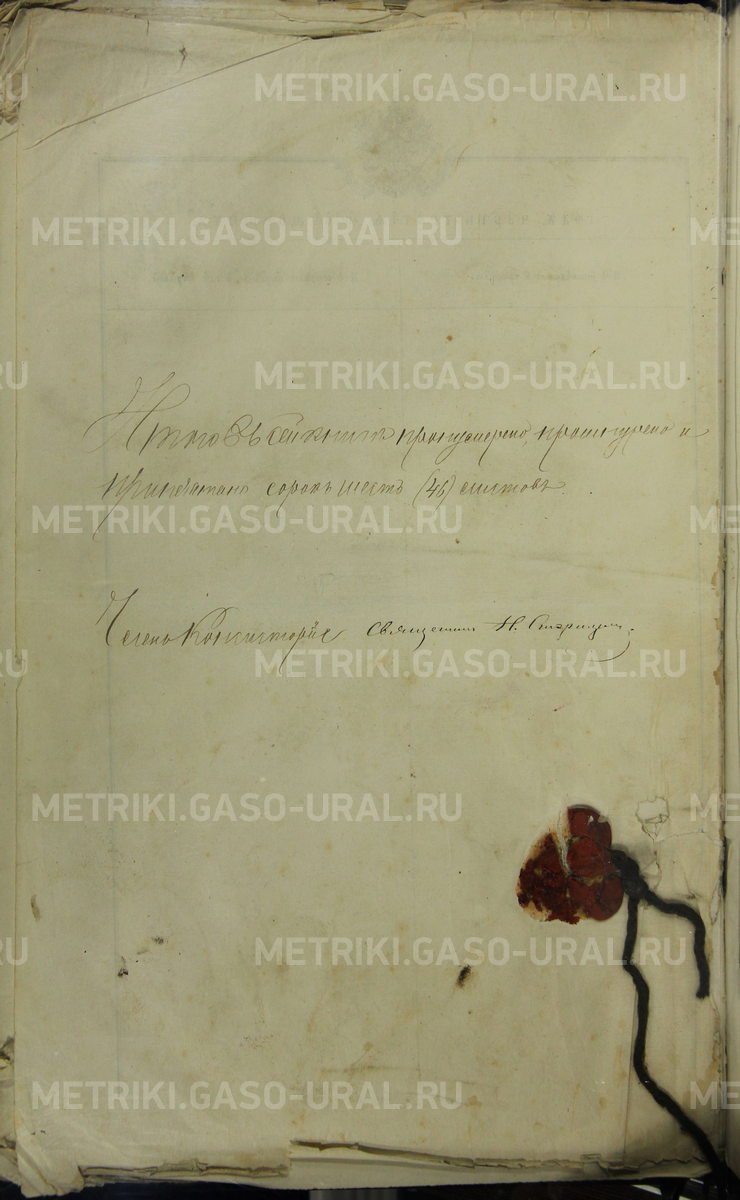 METRIKI.GASO-URAL.RU
METRIKI.GASO-URAL.RU
METRIKI.GASO-URAL.RU
Итого въ сей книгѣ пронумеровано, прошнуровано и
припечатано сорокъ шесть (46) листовъ.
METRIKI.GASO-URAL.RU
Членъ Консисторіи Священникъ Н.
METRIKI.GASO-URAL.RU
METRIKI.GASO-URAL.RU
METRIKI.GASO-URAL.RU
METRIKI.GASO-URAL.RU